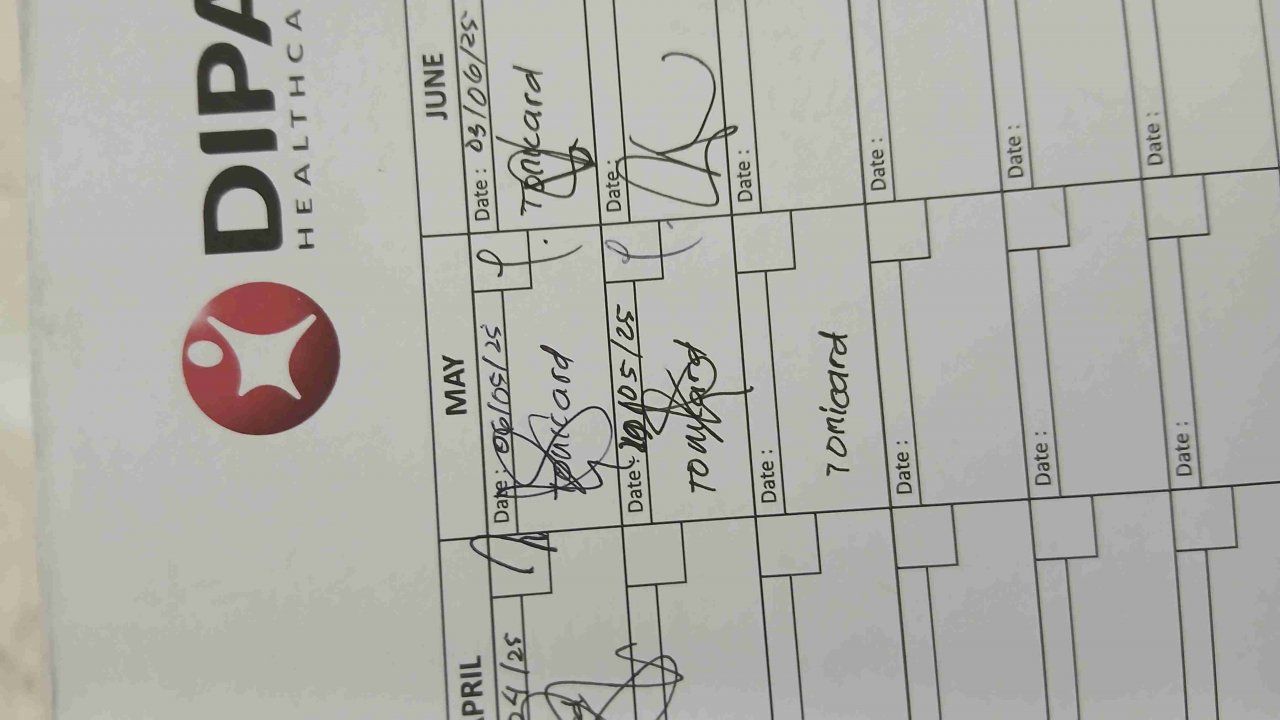 DIPA
HEALTHCA
APRIL
MAY
JUNE
24/25
Date : 06/05/25
Date : 03/06/25
Tonicard
Tonycard
Date : /05/25
Date :
Tonykard
Date :
Date :
Tonicard
Date :
Date :
Date :
Date :
Date :
Date :